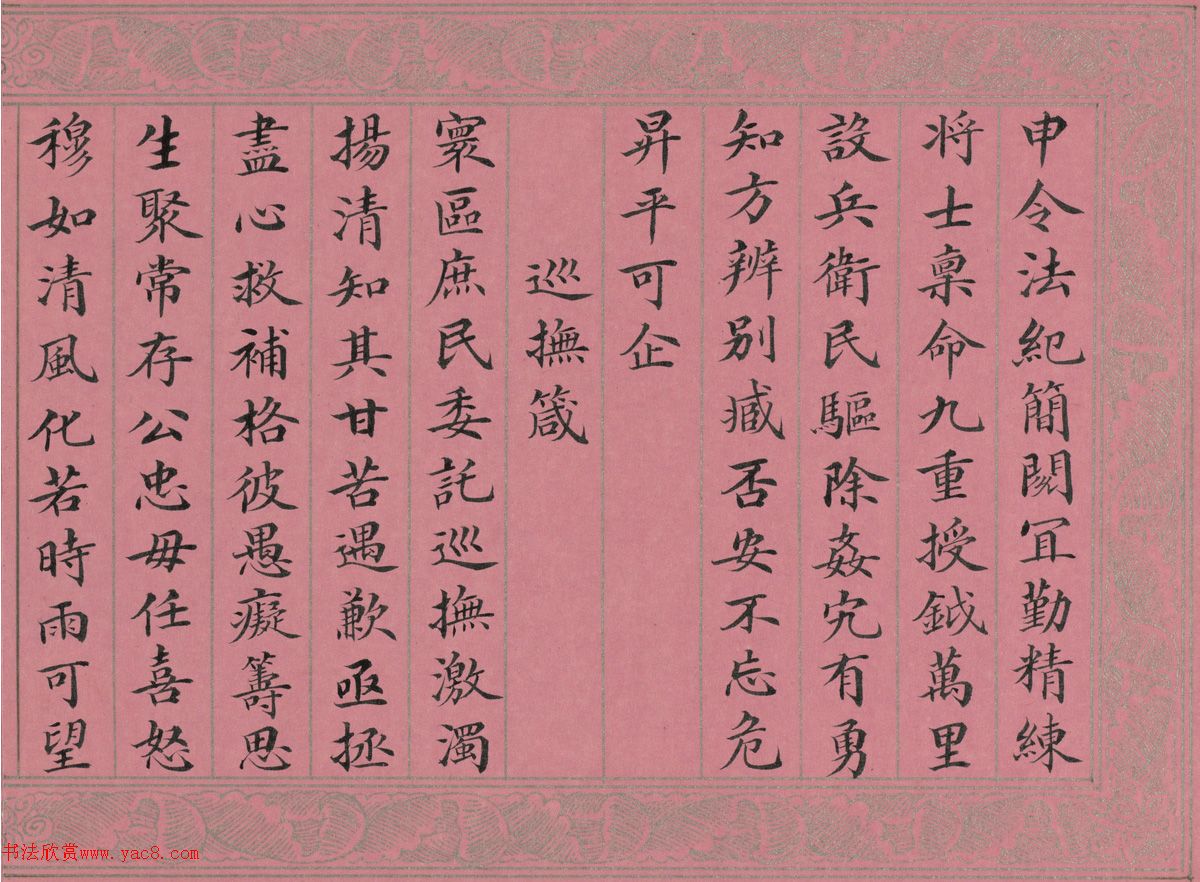 申令法紀簡閱宜勤精練
将士稟命九重授鉞萬里
設兵衛民驅除姦宄有勇
知方辨別臧否安不忘危
昇平可企
巡撫箴
寰區庶民委託巡撫激濁
揚清知其甘苦遇歉亟拯
盡心救補格彼愚癡籌思
生聚常存公忠毋任喜怒
穆如清風化若時雨可望
书法欣赏www.yac8.com